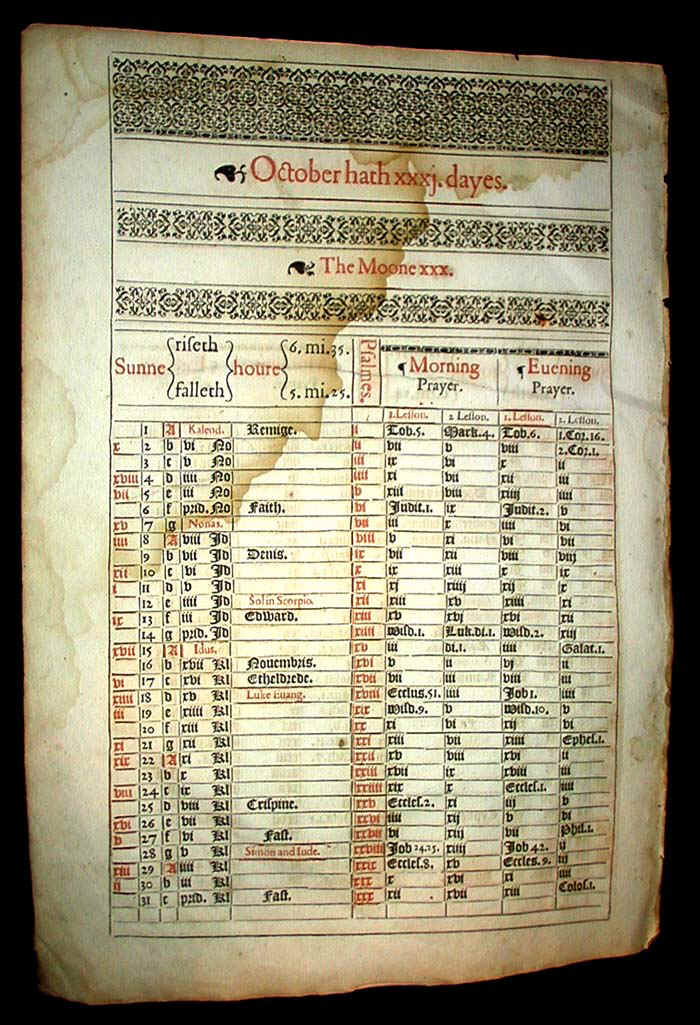 October hath xxxj. dayes.
The Moone xxx.
Sunne { riseth falleth } houre { 6. mi. 35. 5. mi. 25. Psalmes. Morning Prayer. Euening Prayer.
1. Lesson. 2 Lesson. 1. Lesson. 2. Lesson.
1 A Kalend. Remige. i Tob. 5. Mark. 4. Tob. 6. 1. Cor. 16.
x 2 b vi No ii vii v viii 2. Cor. 1.
3 c v No iii ix vi x ii
xviii 4 d iiii No iiii xi vii xii iii
vii 5 e iii No v xiii viii xiiii iiii
6 f prid. No Faith. vi Judit. 1. ix Judit. 2. v
xv 7 g Nonas. vii iii x iiii vi
iiii 8 A viii Jd viii v xi vi vii
9 b vii Jd Denis. ix vii xii viii viij
xii 10 c vi Jd x ix xiii x ix
i 11 d v Jd xi xi xiiii xij x
12 e iiii Jd Sol in Scorpio. xii xiii xv xiiii xi
ix 13 f iii Jd Edward. xiii xv xvj xvi xii
14 g prid. Jd xiiii Wisd. 1. Luk. di. 1. Wisd. 2. xiij
xvii 15 A Idus. xv iii di. 1. iiii Galat. 1.
16 b xvii Kl Nouembris. xvi v ii vj ii
vi 17 c xvi Kl Etheldrede. xvii vii iii viii iii
xiiii 18 d xv Kl Luke Euang. xviii Ecclus. 51. iiii Job 1. iiii
iii 19 e xiiii Kl xix Wisd. 9. v Wisd. 10. v
20 f xiii Kl xx xi vi xij vi
xi 21 g xii Kl xxi xiii vii xiiii Ephes. 1.
xix 22 A xi Kl xxii xv viii xvi ii
23 b x Kl xxiii xvii ix xviii iii
viii 24 c ix Kl xxiiii xix x Eccles. 1. iiii
25 d viii Kl Crispine. xxv Eccles. 2. xi iij v
xvi 26 e vii Kl xxvi iiii xij v vi
v 27 f vi Kl Fast. xxvii vi xiij vii Phil. 1.
28 g v Kl Simon and Iude. xxviii Job 24.25. xiiij Job 42. ii
xiii 29 A iiii Kl xxix Eccles. 8. xv Eccles. 9. iij
ii 30 b iii Kl xxx x xvi xi iiii
31 c prid. Kl Fast. xxx xii xvii xiii Colos. 1.